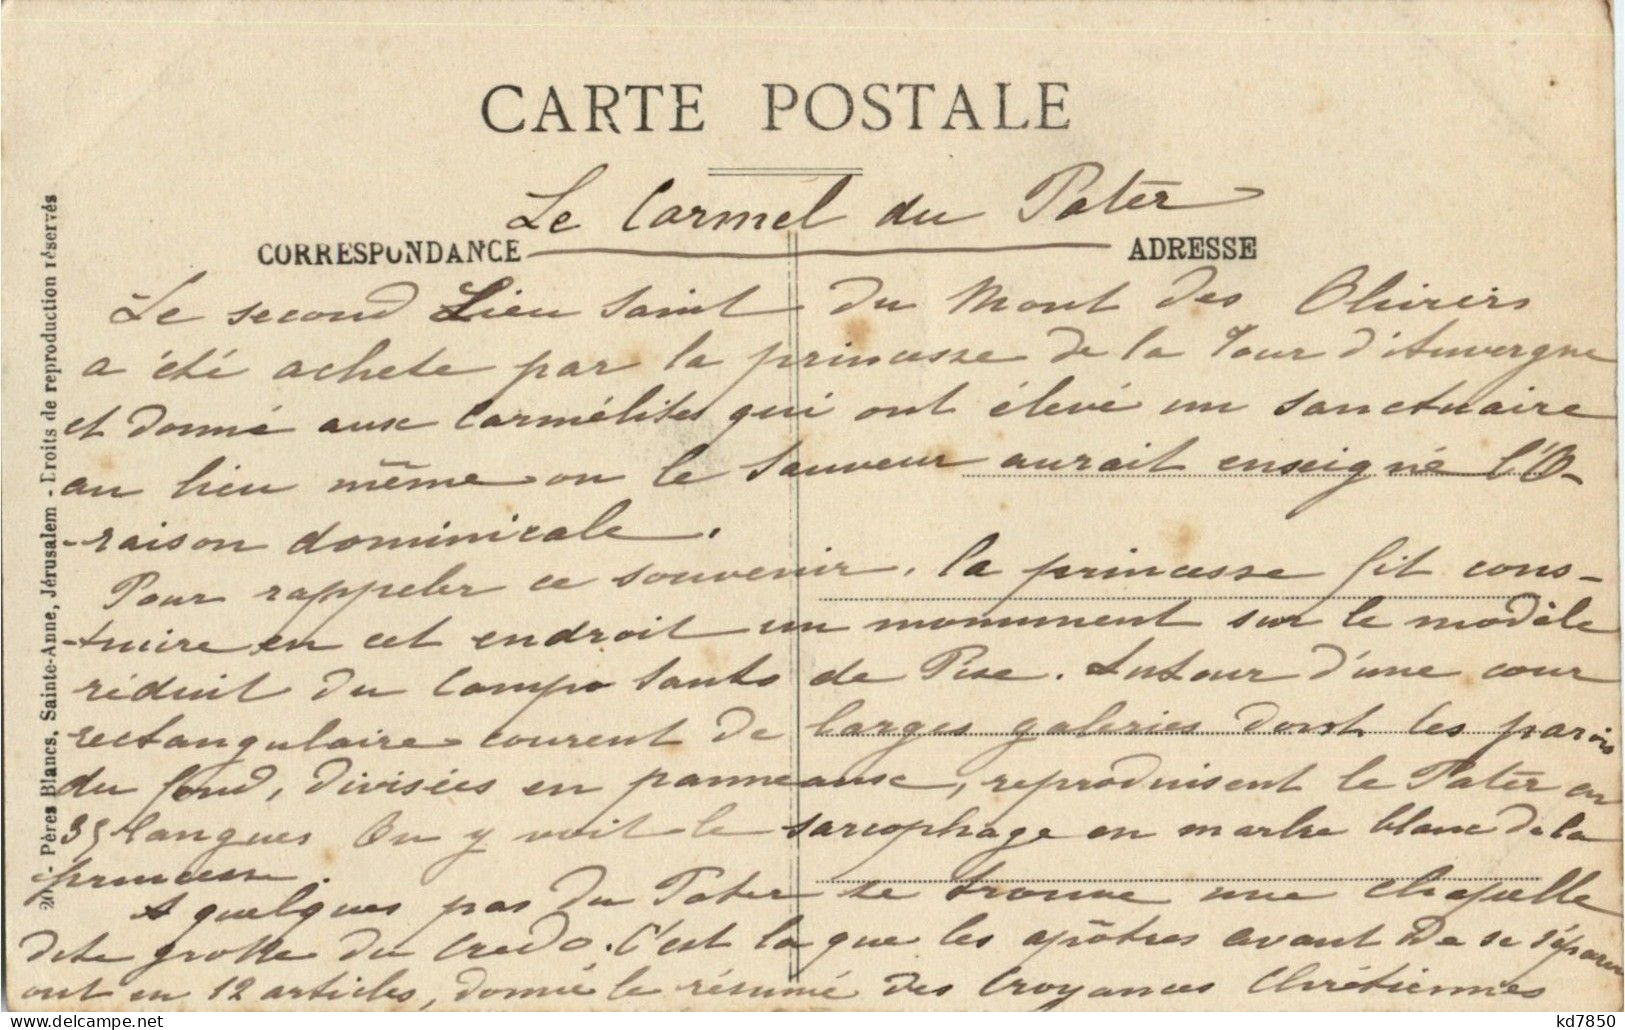 CARTE POSTALE
Le Carmel du Pater
CORRESPONDANCE
ADRESSE
Le second Lieu Saint du Mont des Oliviers
a été acheté par la princesse de la Tour d'Auvergne
et donné aux Carmélites qui ont élevé un sanctuaire
au lieu même ou le Sauveur aurait enseigné l'O-
-raison dominicale.
Pour rappeler ce souvenir, la princesse fit cons-
-truire en cet endroit un monument sur le modèle
réduit du Campo Santo de Pise. Autour d'une cour
rectangulaire courent de larges galeries dont les parois
du fond, divisées en panneaux, reproduisent le Pater en
35 langues On y voit le sarcophage en marbre blanc de la
princesse.
A quelques pas du Pater se trouve une chapelle
dite grotte du Credo. C'est la que les apôtres avant de se séparer
ont en 12 articles, donné le résumé des Croyances Chrétiennes
20. - Pères Blancs, Sainte-Anne, Jérusalem - Droits de reproduction réservés
kd7850